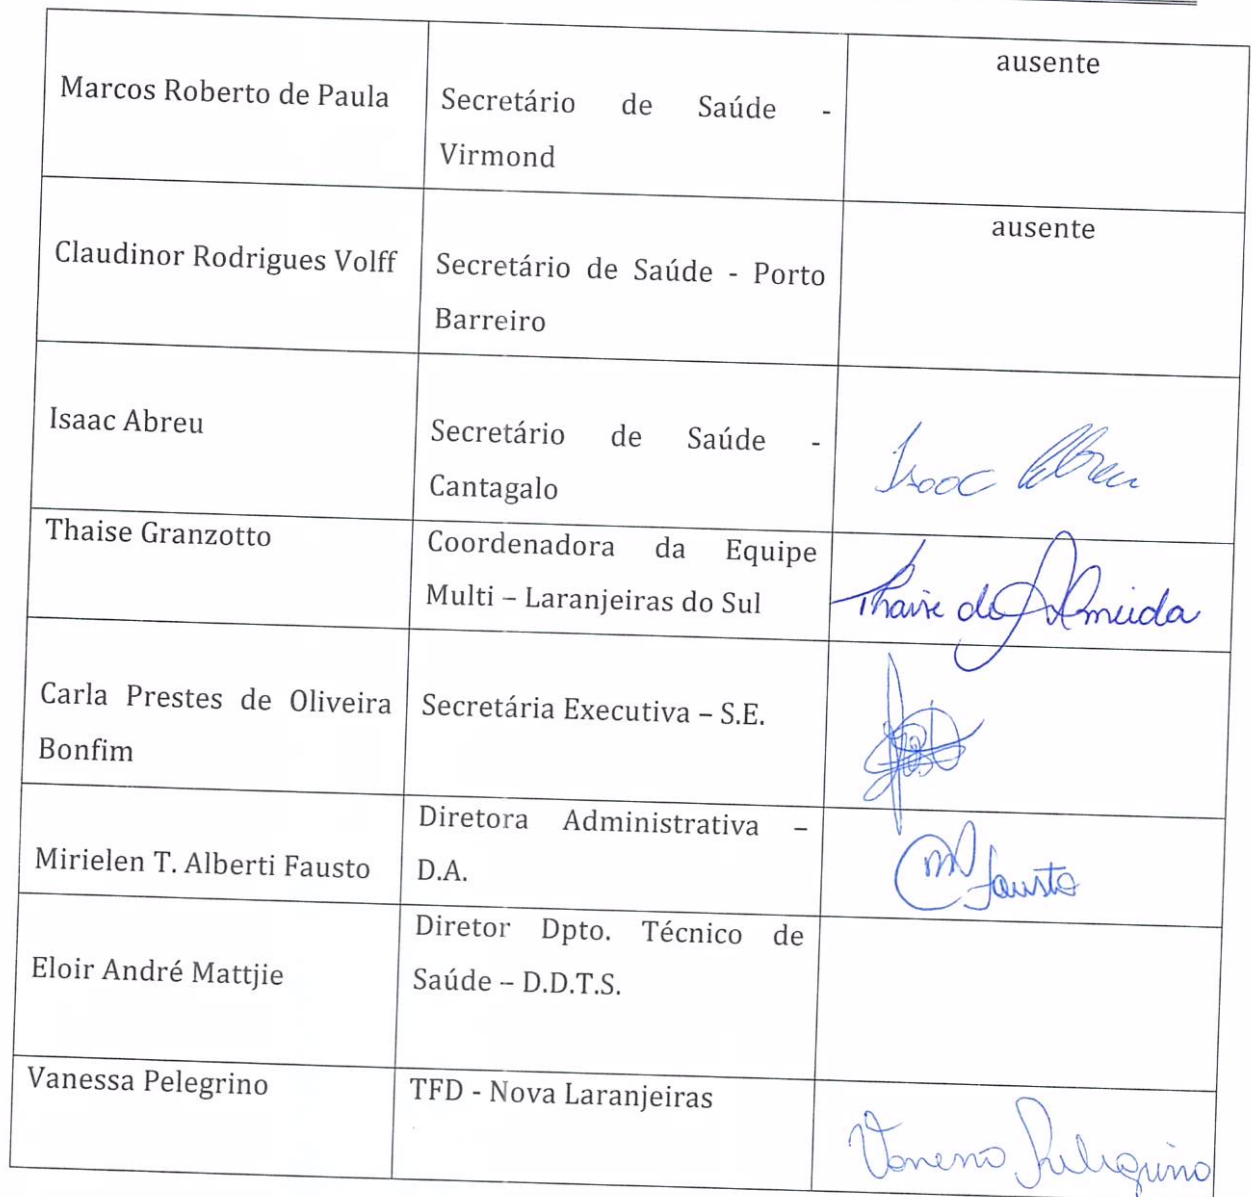 Marcos Roberto de Paula
Secretário de Saúde -
Virmond
ausente
Claudinor Rodrigues Volff
Secretário de Saúde - Porto
Barreiro
ausente
Isaac Abreu
Secretário de Saúde -
Cantagalo
Isaac Abreu
Thaise Granzotto
Coordenadora da Equipe
Multi – Laranjeiras do Sul
Thaise de Almeida
Carla Prestes de Oliveira
Bonfim
Secretária Executiva – S.E.
Mirielen T. Alberti Fausto
Diretora Administrativa –
D.A.
Fausto
Eloir André Mattjie
Diretor Dpto. Técnico de
Saúde – D.D.T.S.
Vanessa Pelegrino
TFD - Nova Laranjeiras
Vanessa Pelegrino